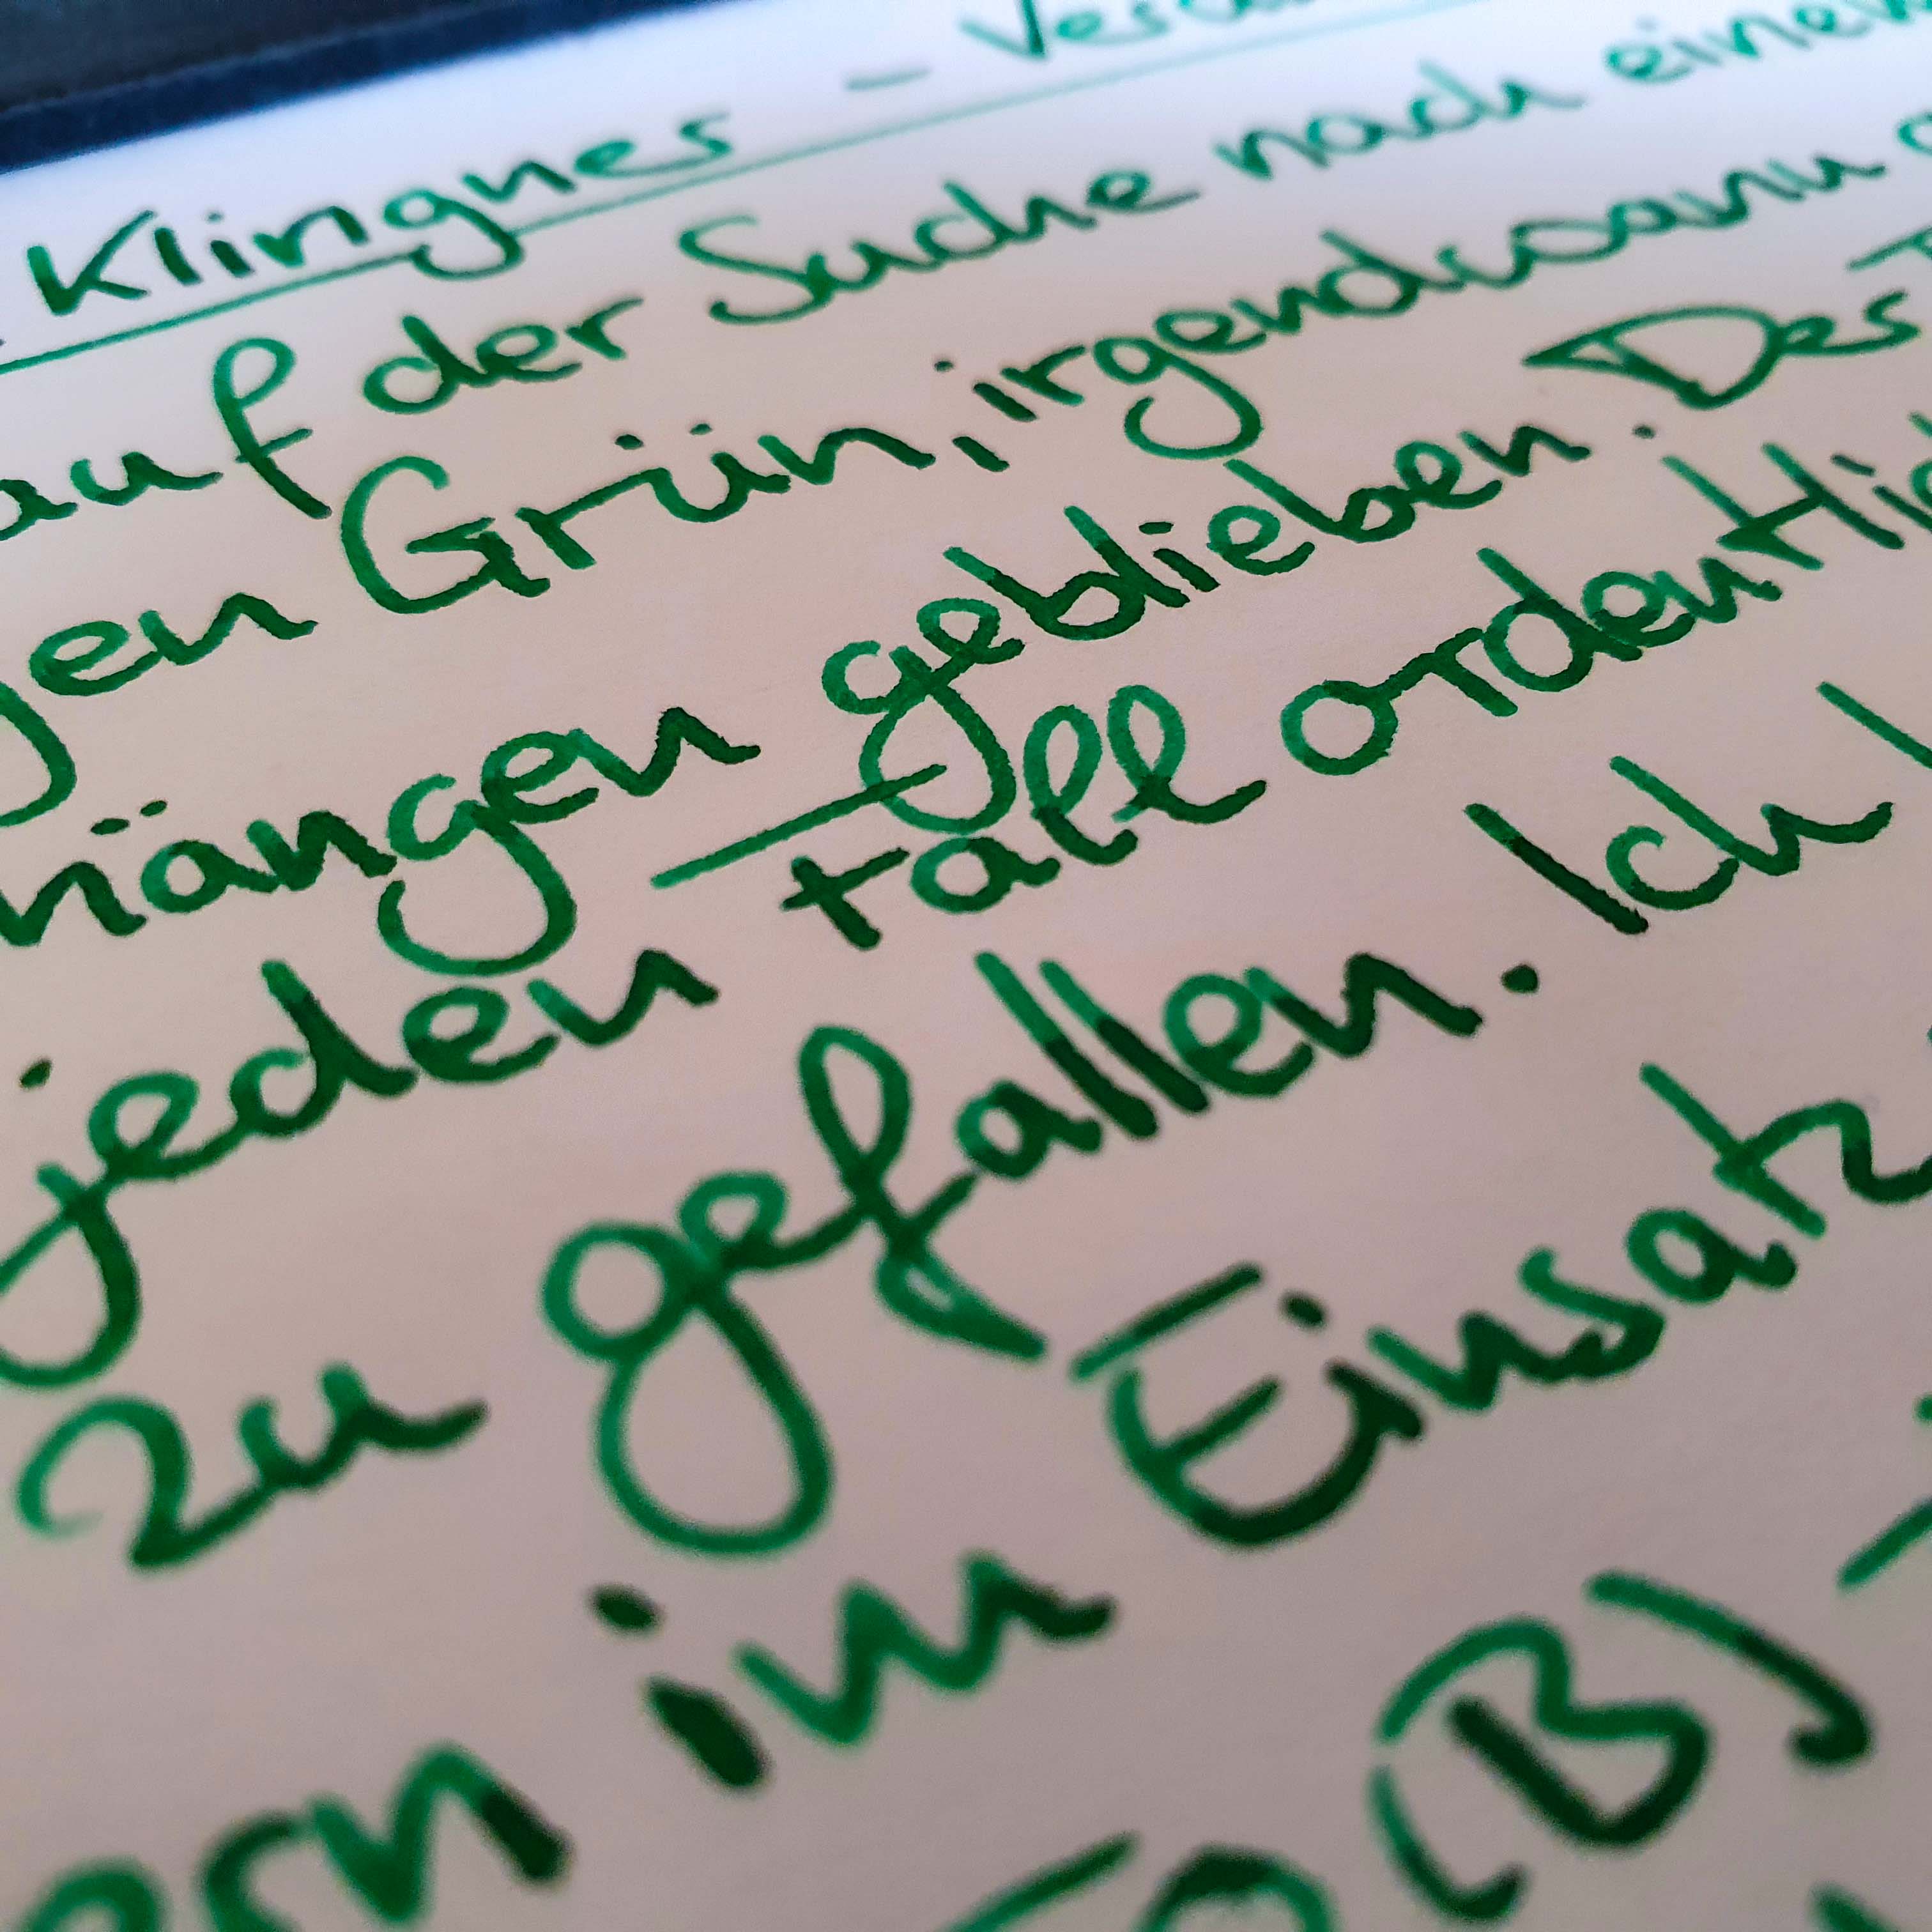 Klingner -
auf der Suche nach einem
gen Grün, irgendwann
hängen geblieben. Der
jeden Fall ordentlich
zu gefallen. Ich
ern im Einsatz
(B) -